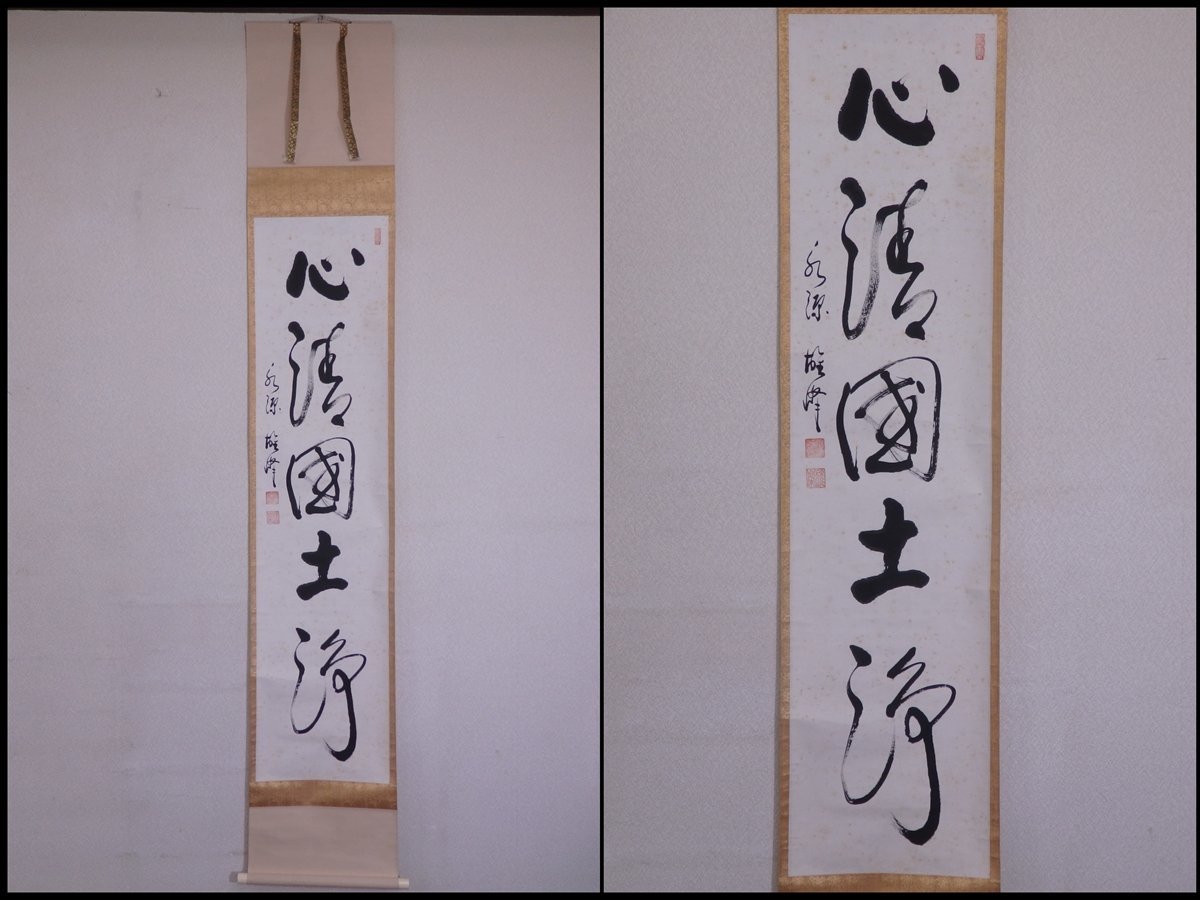 心清國土淨
永源 雄峰
心清國土淨
永源 雄峰